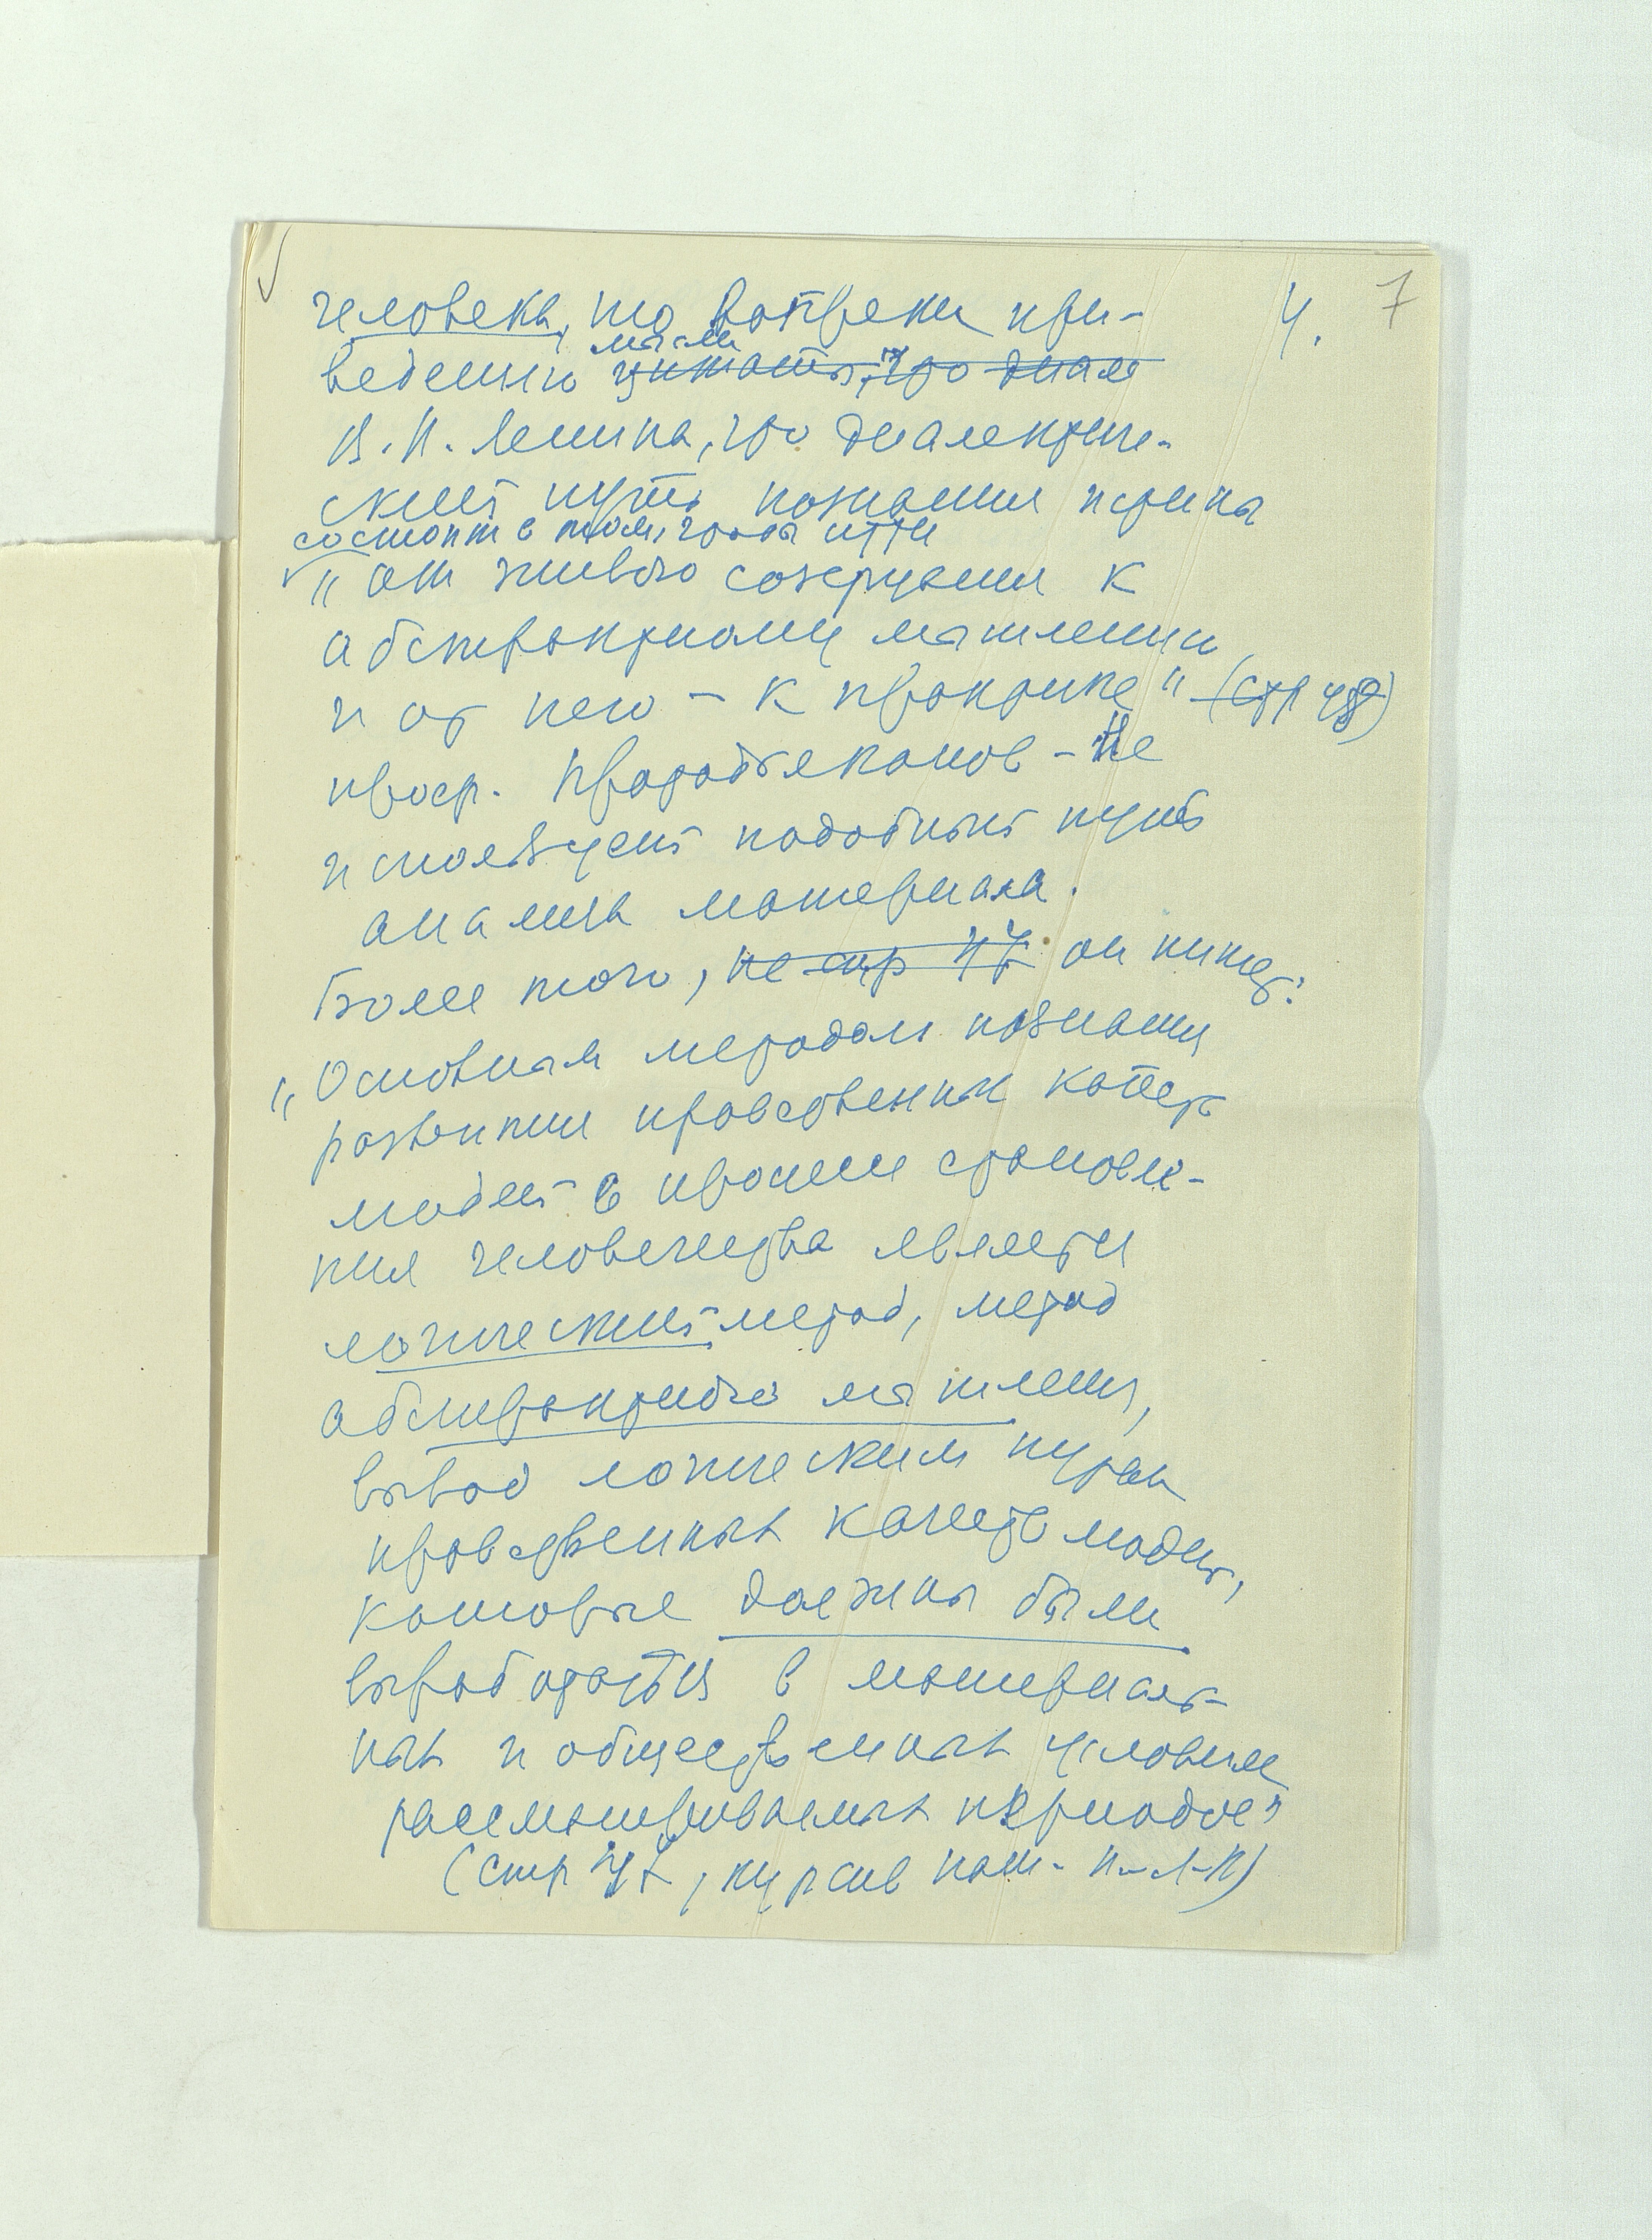 4. 7
человека, то вопреки при-
мысли
ведению цитаты, что диале
В.И. Ленина, что диалектиче-
ский путь познания истины
состоит в том, чтобы итти
"от живого созерцания к
абстрактному мышлению
и от него – к практике" (стр 48)
проф. Протодьяконов – не
использует подобный путь
анализа материала.
Более того, на стр 47 он пишет:
"Основным методом познания
развития нравственных качеств
людей в процессе становле-
ния человечества является
логический метод, метод
абстрактного мышления,
вывод логическим путем
нравственных качеств людей,
которые должны были
выработаться в материаль-
ных и общественных условиях
рассматриваемых периодов"
(стр 47, курсив наш